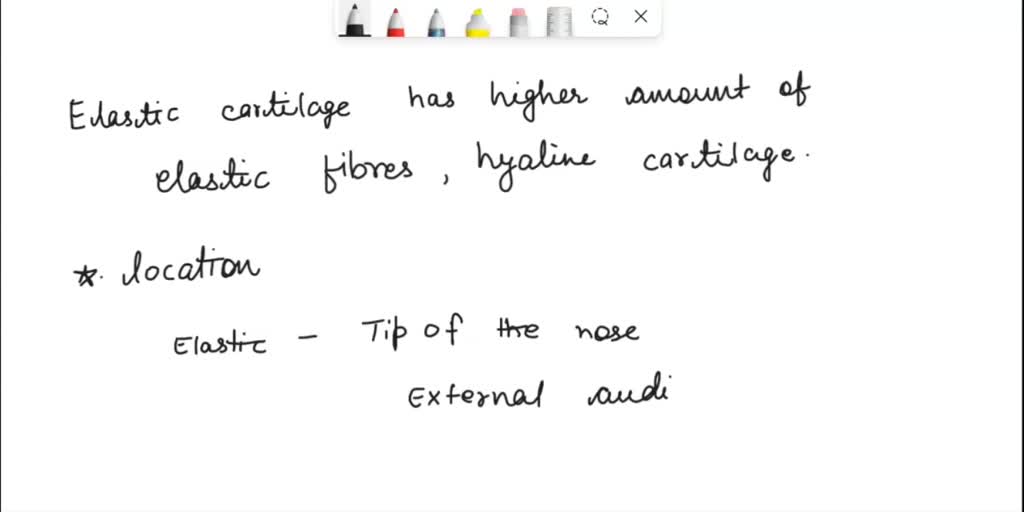 Elastic cartilage has higher amount of
elastic fibres, hyaline cartilage.
*. location
Elastic - Tip of the nose
External audi